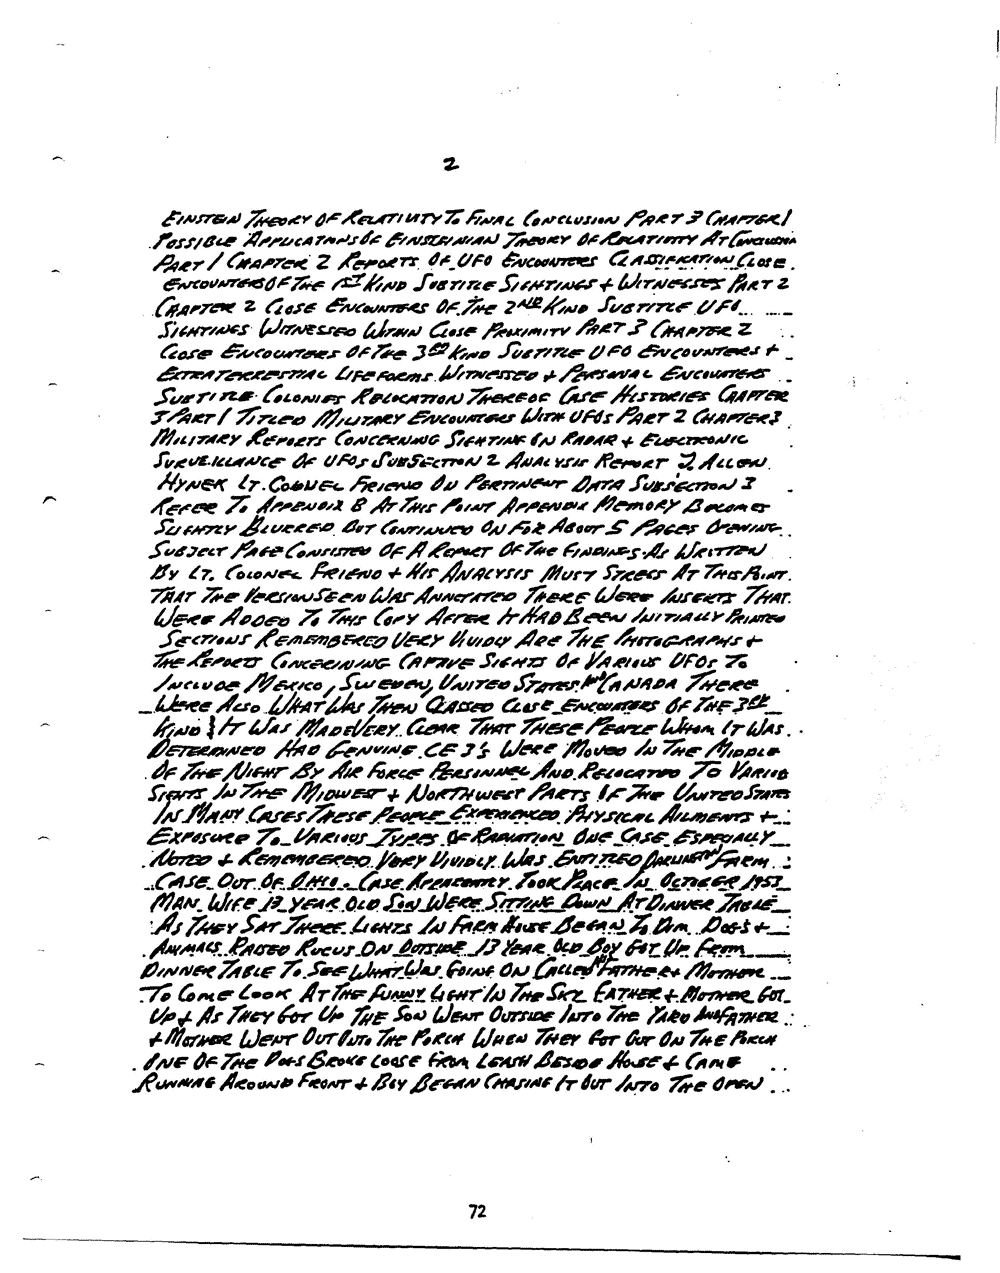 2
EINSTEIN THEORY OF RELATIVITY TO FINAL CONCLUSION PART 3 CHAPTER 1
POSSIBLE APPLICATIONS OF EINSTEINIAN THEORY OF RELATIVITY AT CONCLUSION
PART 1 CHAPTER 2 REPORTS OF UFO ENCOUNTERS CLASSIFICATION CLOSE
ENCOUNTERS OF THE 1ST KIND SUBTITLE SIGHTINGS + WITNESSES PART 2
CHAPTER 2 CLOSE ENCOUNTERS OF THE 2ND KIND SUBTITLE UFO
SIGHTINGS WITNESSED WITHIN CLOSE PROXIMITY PART 3 CHAPTER 2
CLOSE ENCOUNTERS OF THE 3RD KIND SUBTITLE UFO ENCOUNTERS +
EXTRATERRESTRIAL LIFE FORMS WITNESSED + PERSONAL ENCOUNTERS
SUBTITLE COLONIES RELOCATION THEREOF CASE HISTORIES CHAPTER
3 PART 1 TITLED MILITARY ENCOUNTERS WITH UFOS PART 2 CHAPTER 3
MILITARY REPORTS CONCERNING SIGHTING ON RADAR + ELECTRONIC
SURVEILLANCE OF UFOS SUBSECTION 2 ANALYSIS REPORT J. ALLEN
HYNEK LT. COLONEL FRIEND ON PERTINENT DATA SUBSECTION 3
REFER TO APPENDIX B AT THIS POINT APPENDIX MEMORY BECOMES
SLIGHTLY BLURRED BUT CONTINUED ON FOR ABOUT 5 PAGES OPENING
SUBJECT PAGE CONSISTED OF A REPORT OF THE FINDINGS AS WRITTEN
BY LT. COLONEL FRIEND + HIS ANALYSIS MUST STRESS AT THIS POINT
THAT THE VERSION SEEN WAS ANNOTATED THERE WERE INSERTS THAT
WERE ADDED TO THIS COPY AFTER IT HAD BEEN INITIALLY PRINTED
SECTIONS REMEMBERED VERY VIVIDLY ARE THE PHOTOGRAPHS +
THE REPORTS CONCERNING CAPTIVE SIGHTS OF VARIOUS UFOS TO
INCLUDE MEXICO, SWEDEN, UNITED STATES AND CANADA THERE
WERE ALSO WHAT WAS THEN CLASSED CLOSE ENCOUNTERS OF THE 3RD
KIND IT WAS MADE VERY CLEAR THAT THESE PEOPLE WHOM IT WAS
DETERMINED HAD GENUINE CE 3'S WERE MOVED IN THE MIDDLE
OF THE NIGHT BY AIR FORCE PERSONNEL AND RELOCATED TO VARIOUS
SIGHTS IN THE MIDWEST + NORTHWEST PARTS OF THE UNITED STATES
IN MANY CASES THESE PEOPLE EXPERIENCED PHYSICAL AILMENTS +
EXPOSURE TO VARIOUS TYPES OF RADIATION ONE CASE ESPECIALLY
NOTED + REMEMBERED VERY VIVIDLY WAS ENTITLED DARLINGTON FARM
CASE OUT OF OHIO. CASE APPARENTLY TOOK PLACE IN OCTOBER 1953
MAN WIFE 13 YEAR OLD SON WERE SITTING DOWN AT DINNER TABLE
AS THEY SAT THERE LIGHTS IN FARM HOUSE BEGAN TO DIM DOGS +
ANIMALS RAISED RUCUS ON OUTSIDE 13 YEAR OLD BOY GOT UP FROM
DINNER TABLE TO SEE WHAT WAS GOING ON CALLED HIS FATHER + MOTHER
TO COME LOOK AT THE FUNNY LIGHT IN THE SKY FATHER + MOTHER GOT
UP + AS THEY GOT UP THE SON WENT OUTSIDE INTO THE YARD AND FATHER
+ MOTHER WENT OUT ONTO THE PORCH WHEN THEY GOT OUT ON THE PORCH
ONE OF THE DOGS BROKE LOOSE FROM LEASH BESIDE HOUSE + CAME
RUNNING AROUND FRONT + BOY BEGAN CHASING IT OUT INTO THE OPEN
72